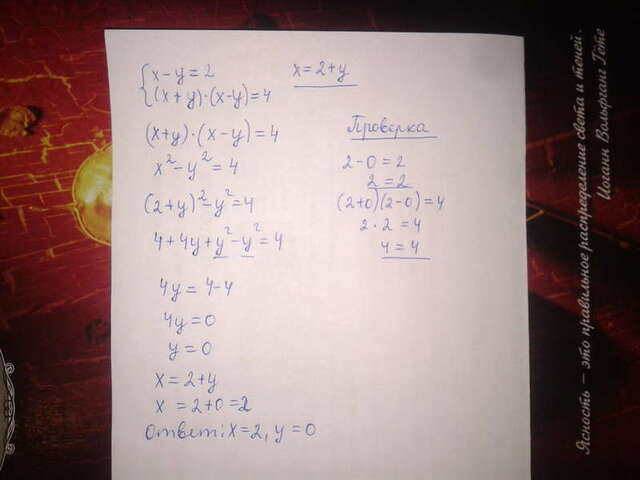 x - y = 2
(x + y) · (x - y) = 4
x = 2 + y
(x + y) · (x - y) = 4
x² - y² = 4
(2 + y)² - y² = 4
4 + 4y + y² - y² = 4
4y = 4 - 4
4y = 0
y = 0
x = 2 + y
x = 2 + 0 = 2
Ответ: x = 2, y = 0
Проверка
2 - 0 = 2
2 = 2
(2 + 0)(2 - 0) = 4
2 · 2 = 4
4 = 4
Ясность – это правильное распределение света и теней.
Иоганн Вольфганг Гёте